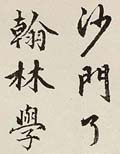 沙門了
翰林學